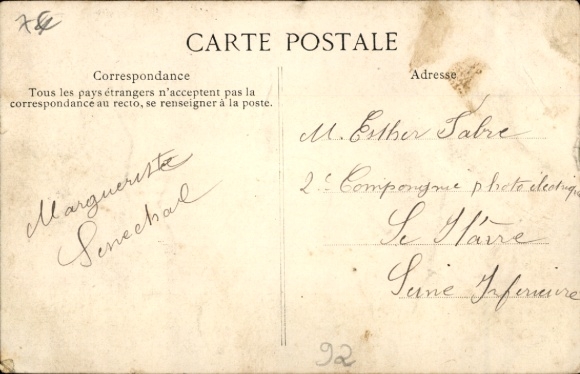 74
CARTE POSTALE
Correspondance
Tous les pays étrangers n'acceptent pas la
correspondance au recto, se renseigner à la poste.
Marguerite
Senechal
Adresse
M. Esther Fabre
2e Compangnie photo électrique
Le Hâvre
Seine Inferieure
92